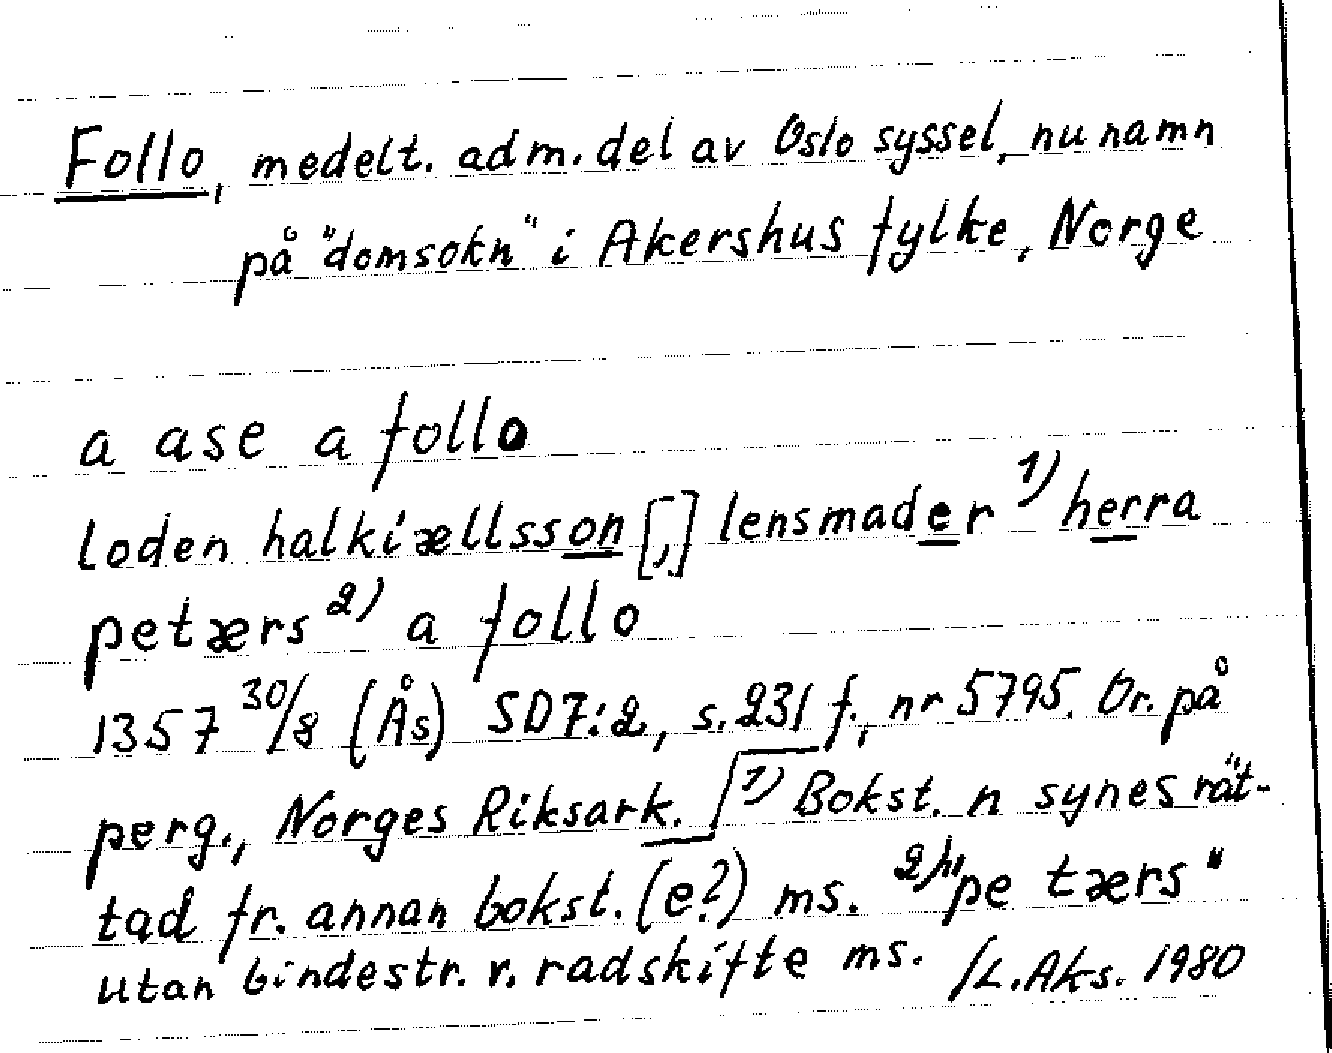 Follo, medelt. adm. del av Oslo syssel, nu namn
på "domsokn" i Akershus fylke, Norge
a ase a follo
loden halkiællsson [,] lensmader 1) herra
petærs 2) a follo
1357 30/8 (Ås) SD 7:2, s. 231 f., nr 5795. Or. på
perg., Norges Riksark. 1) Bokst. n synes rät-
tad fr. annan bokst. (e?) ms. 2) "pe tærs"
utan bindestr. v. radskifte ms. /L. Aks. 1980